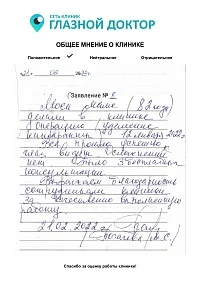 СЕТЬ КЛИНИК
ГЛАЗНОЙ ДОКТОР
ОБЩЕЕ МНЕНИЕ О КЛИНИКЕ
Положительное Нейтральное Отрицательное
Заявление №
Моей маме (82 года)
делали в клинике
операцию удаление
катаракты 12 января 2022г.
Всё прошло успешно,
глаз видит, осложнений
нет. Было 3 бесплатных
консультации.
Выражаем благодарность
сотрудникам клиники
за
работу.
21.02.2022г.
Спасибо за оценку работы клиники!